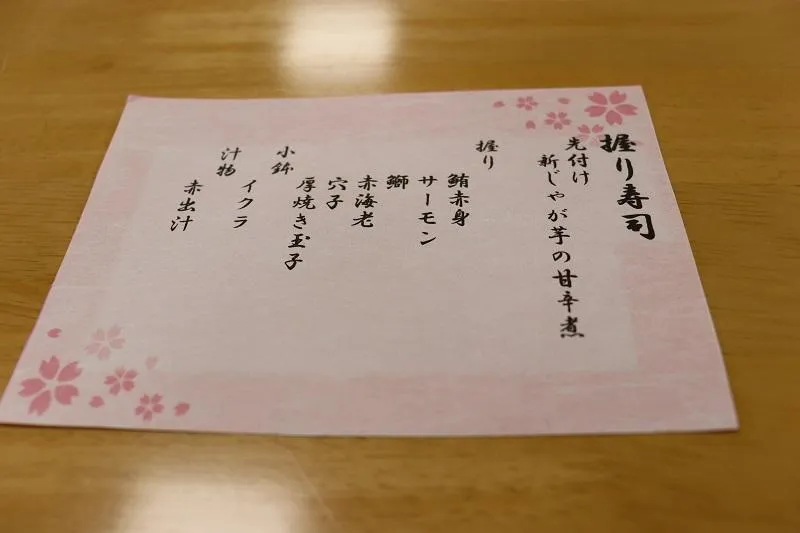 握り寿司
先付け
新じゃが芋の甘辛煮
握り
鮪赤身
サーモン
鰤
赤海老
穴子
厚焼き玉子
小鉢
イクラ
汁物
赤出汁